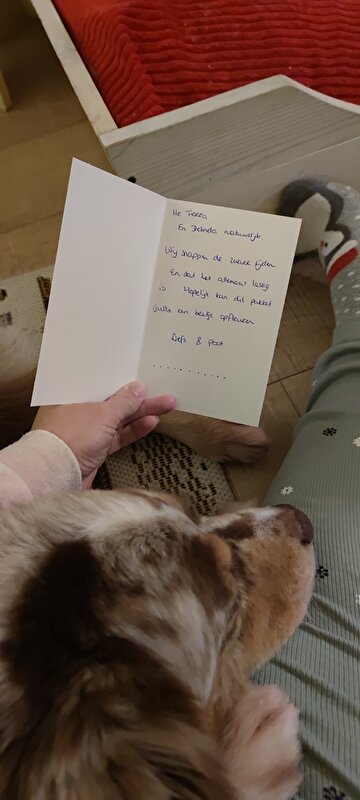 He Tierra
En Jhelinda natuurlijk.
Wij snappen de zware tijden
En dat het allemaal lastig
is. Hopelijk kan dit pakket
jullie een beetje opfleuren
Liefs & poot
...........